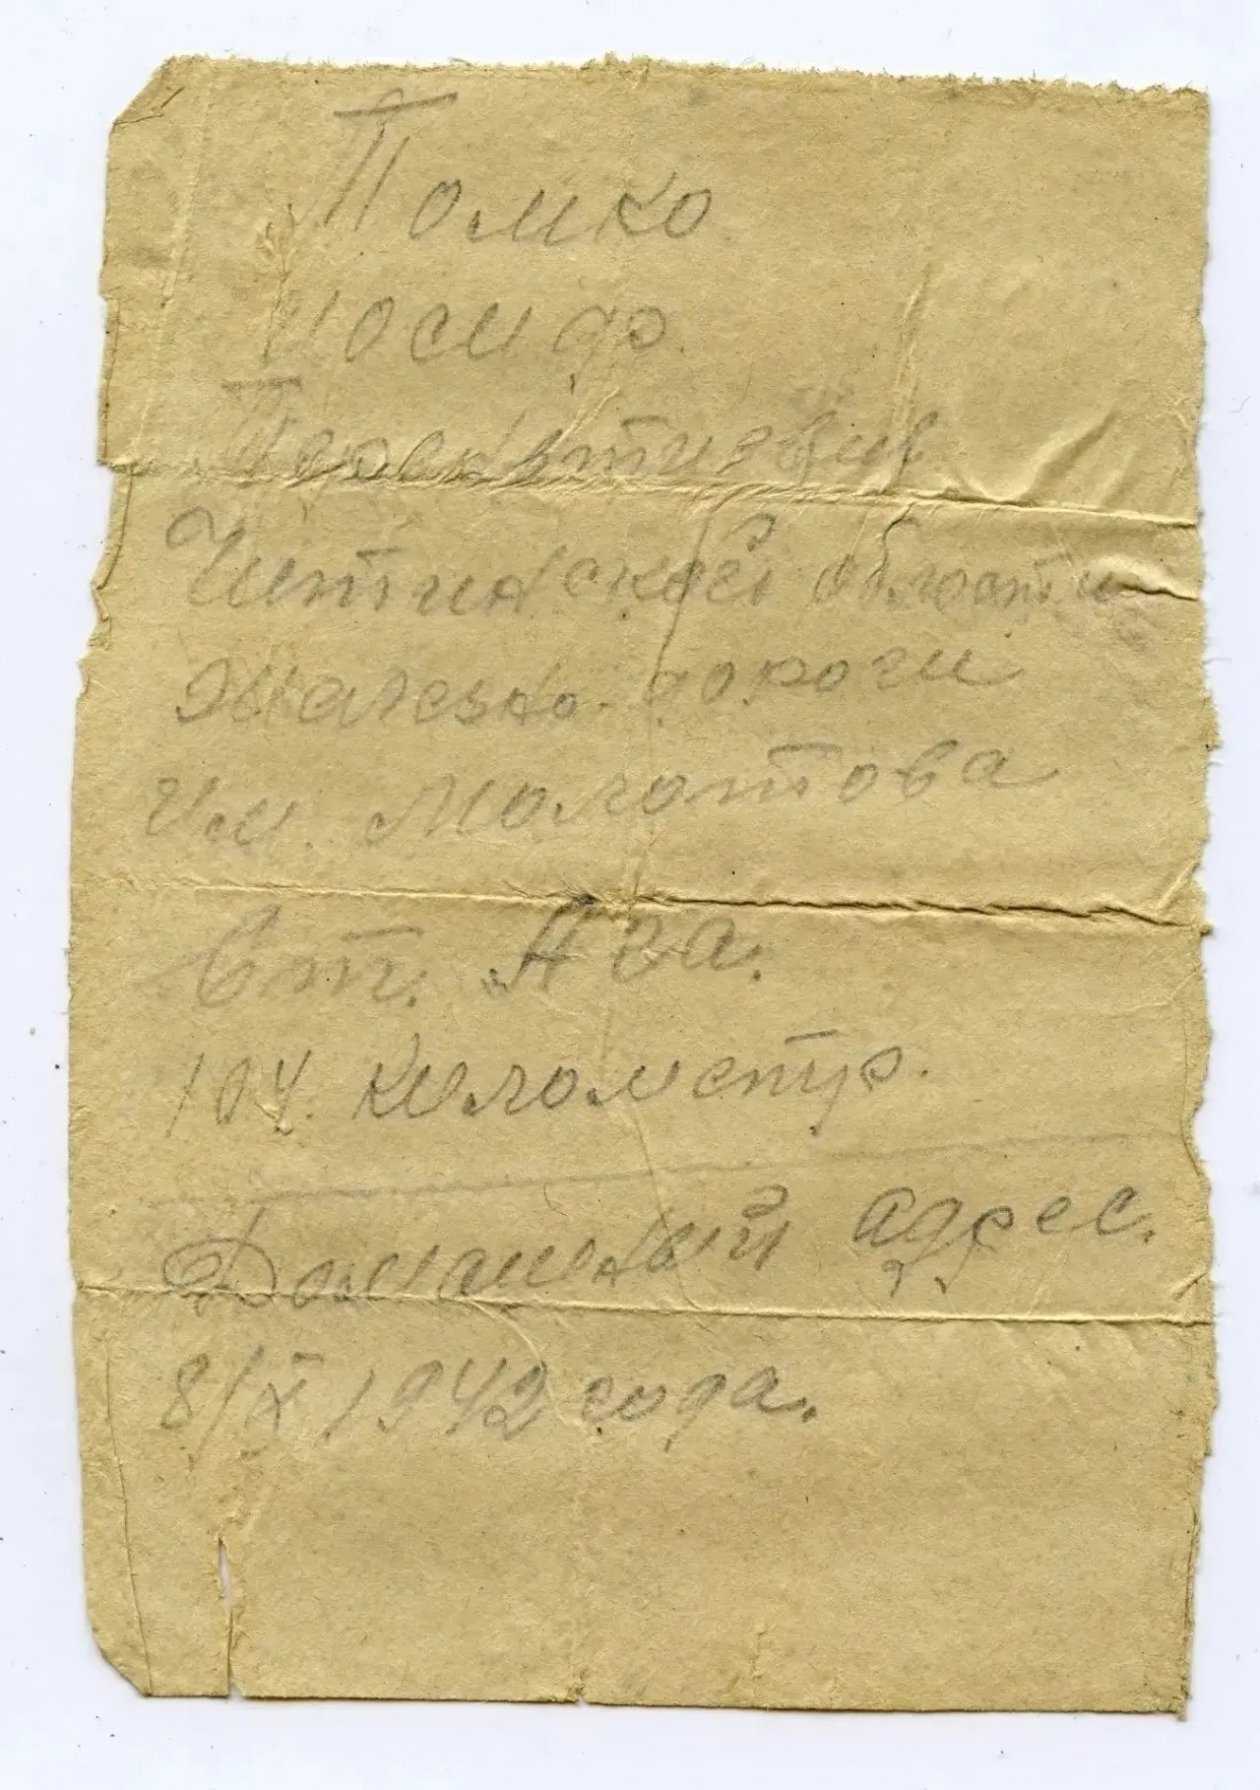 Томко
Иосиф
Читинской области
Жалезно. дороги
им. Молотова
Ст. Ага.
104. километр.
Домашний адрес.
8/IX 1942 года.